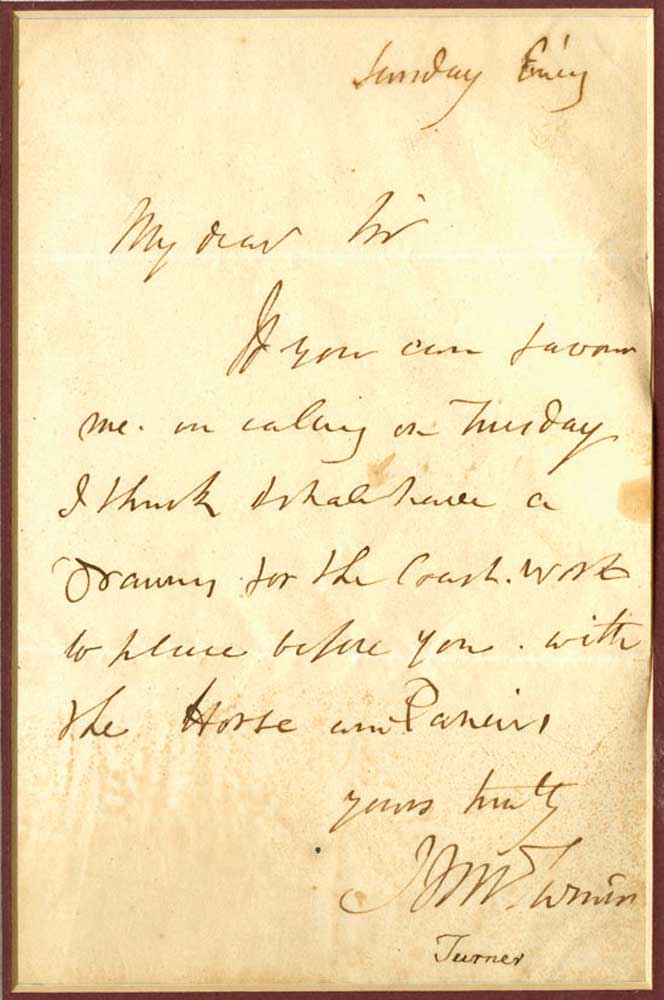 Sunday Eve'g
My dear Sir
If you can favour
me. in calling on Tuesday
I think I shall have a
Drawing for the Coast. Work
to place before you. with
the Horse and Paniers
yours truly
JMW Turner
Turner